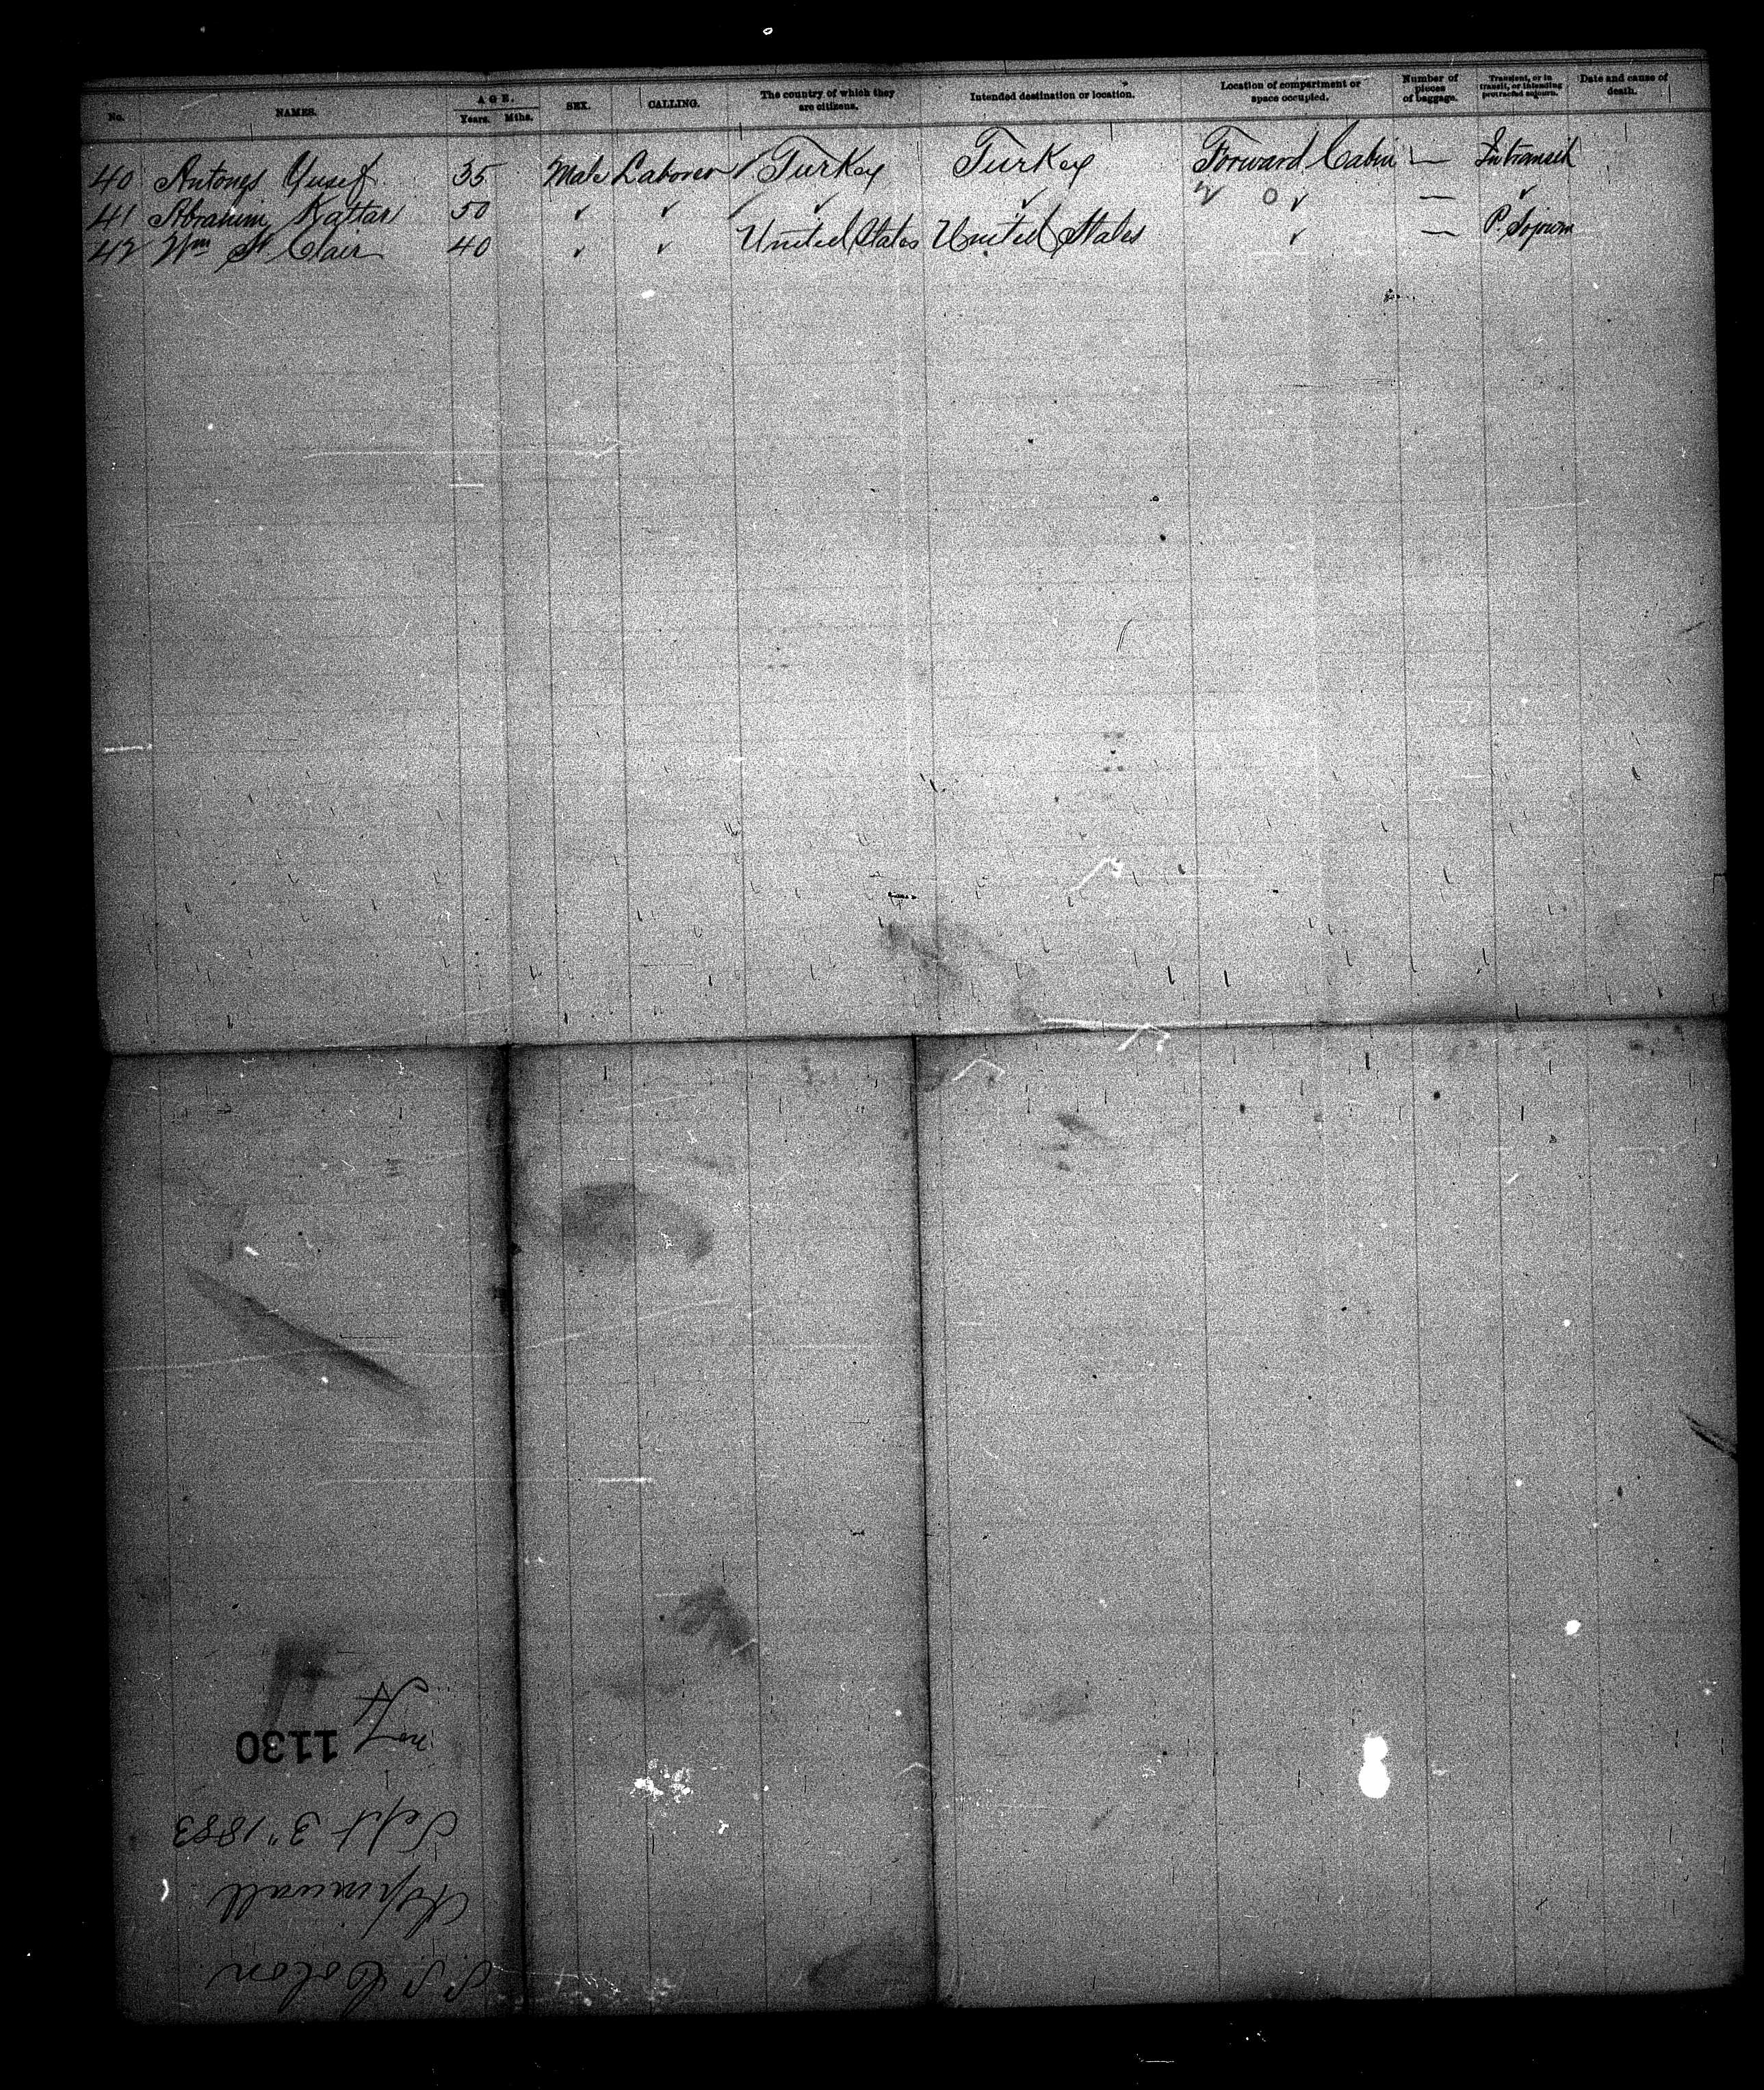 No. NAMES. AGE. Years. Mths. SEX. CALLING. The country of which they are citizens. Intended destination or location. Location of compartment or space occupied. Number of pieces of baggage. Transient, or in transit, or intending protracted sojourn. Date and cause of death.
40 Antonys Yusef 35 Male Laborer ✓ Turkey Turkey Forward Cabin — In transit
41 Abrahim Kattar 50 ✓ ✓ ✓ ✓ ✓ — ✓
42 Wm St. Clair 40 ✓ ✓ United States United States ✓ — P. Sojourn
S.S. Colon
Aspinwall
Sept 3" 1883
1130